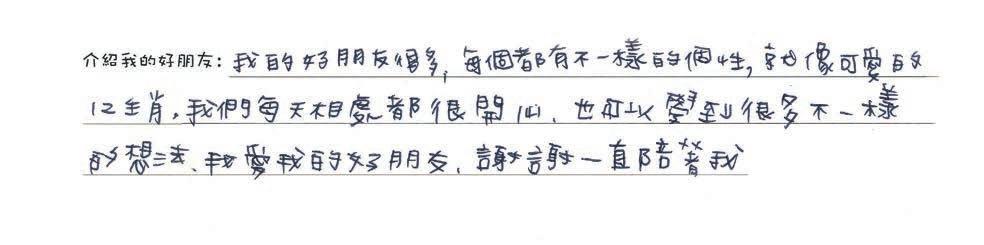 介紹我的好朋友：我的好朋友很多，每個都有不一樣的個性，就像可愛的
12生肖，我們每天相處都很開心，也可以學到很多不一樣
的想法、我愛我的好朋友，謝謝一直陪著我